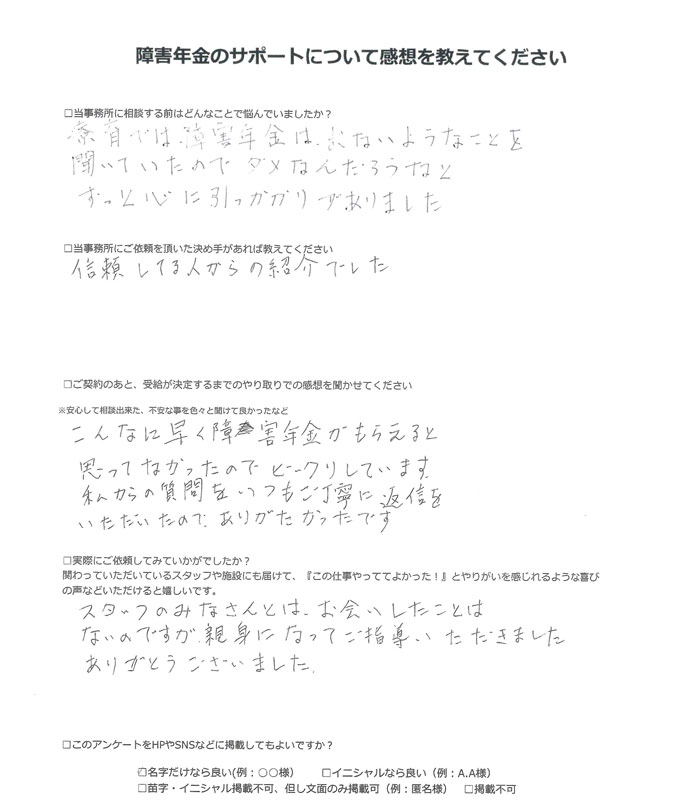 障害年金のサポートについて感想を教えてください
□当事務所に相談する前はどんなことで悩んでいましたか？
療育では、障害年金は、出ないようなことを
聞いていたので ダメなんだろうなと
ずっと心に引っかかりがありました
□当事務所にご依頼を頂いた決め手があれば教えてください
信頼してる人からの紹介でした
□ご契約のあと、受給が決定するまでのやり取りでの感想を聞かせてください
※安心して相談出来た、不安な事を色々と聞けて良かったなど
こんなに早く障害年金がもらえると
思ってなかったので ビックリしています。
私からの質問をいつもご丁寧に返信を
いただいたので、ありがたかったです
□実際にご依頼してみていかがでしたか？
関わっていただいているスタッフや施設にも届けて、『この仕事やっててよかった！』とやりがいを感じれるような喜び
の声などいただけると嬉しいです。
スタッフのみなさんとは、お会いしたことは
ないのですが、親身になってご指導いただきました
ありがとうございました。
□このアンケートをHPやSNSなどに掲載してもよいですか？
□名字だけなら良い(例：○○様） □イニシャルなら良い（例：A.A様）
□苗字・イニシャル掲載不可、但し文面のみ掲載可（例：匿名様） □掲載不可